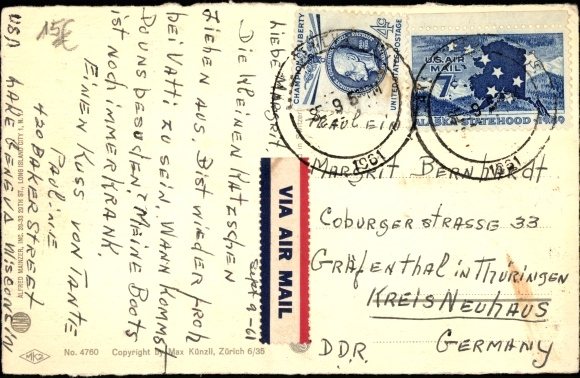 15€
Sept 9-61
Liebe Margrit
Die kleinen Kätzchen
ziehen aus. Bist wieder froh
bei Vatti zu sein. Wann kommst
Du uns besuchen? Meine Boots
ist noch immer krank.
Einen Kuss von Tante
Pauline
420 Baker Street
Lake Geneva Wisconsin
USA
ALFRED MAINZER, INC. 39-33 29TH ST., LONG ISLAND CITY 1, N.Y.
MKZ
No. 4760 Copyright by Max Künzli, Zürich 6/35
VIA AIR MAIL
CHAMPION OF LIBERTY
4¢
UNITED STATES POSTAGE
U.S. AIR
MAIL
7¢
ALASKA STATEHOOD 1959
1961
1961
Fräulein
Margrit Bernhardt
Coburgerstrasse 33
Gräfenthal in Thuringen
Kreis Neuhaus
D.D.R. Germany